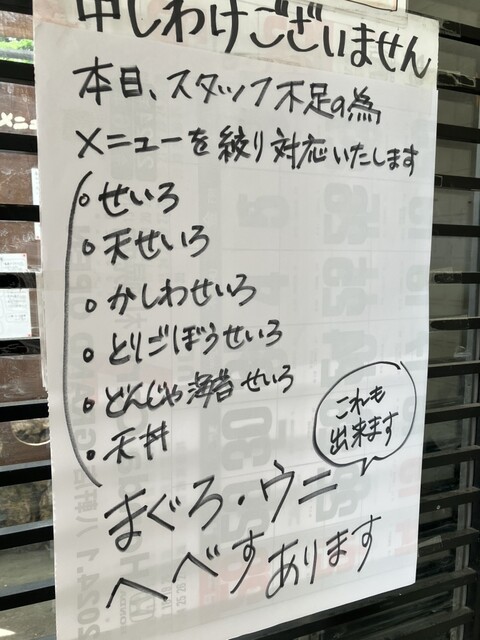 申しわけございません
本日、スタッフ不足の為
メニューを絞り対応いたします
○せいろ
○天せいろ
○かしわせいろ
○とりごぼうせいろ
○せいろ
○天丼
これも
出来ます
まぐろ・ウニ
へべすあります